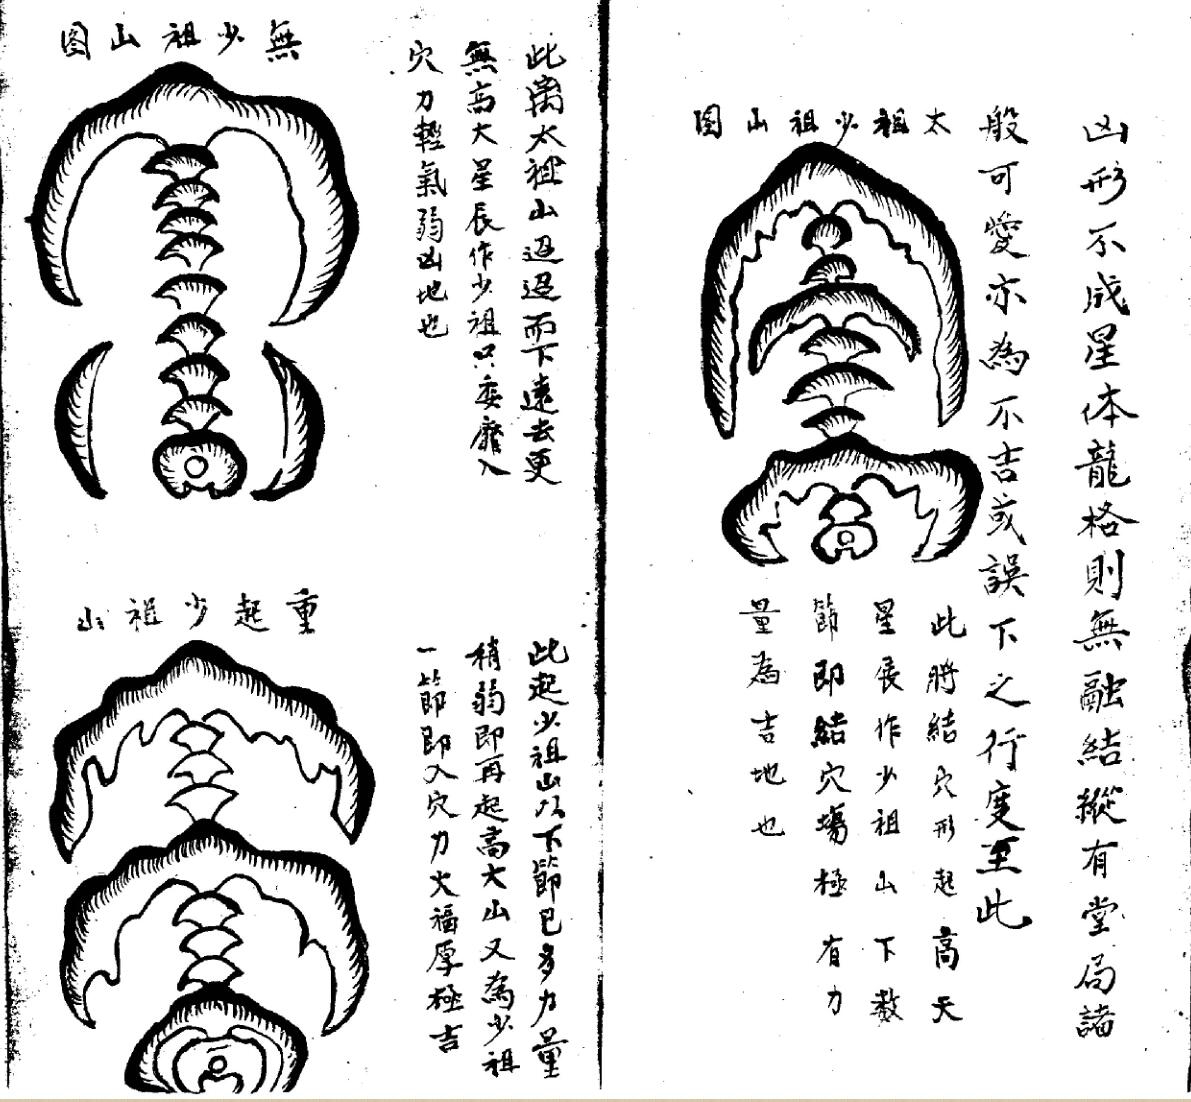 凶形不成星体龍格則無融結縱有堂局諸
般可愛亦為不吉或誤下之行度至此
太祖少祖山圖
此將結穴形起高大
星辰作少祖山下数
節即結穴場極有力
量為吉地也
無少祖山圖
此離太祖山迢迢而下遠去更
無高大星辰作少祖只委靡入
穴力輕氣弱凶地也
重起少祖山
此起少祖山以下節已多力量
稍弱即再起高大山又為少祖
一節即入穴力大福厚極吉